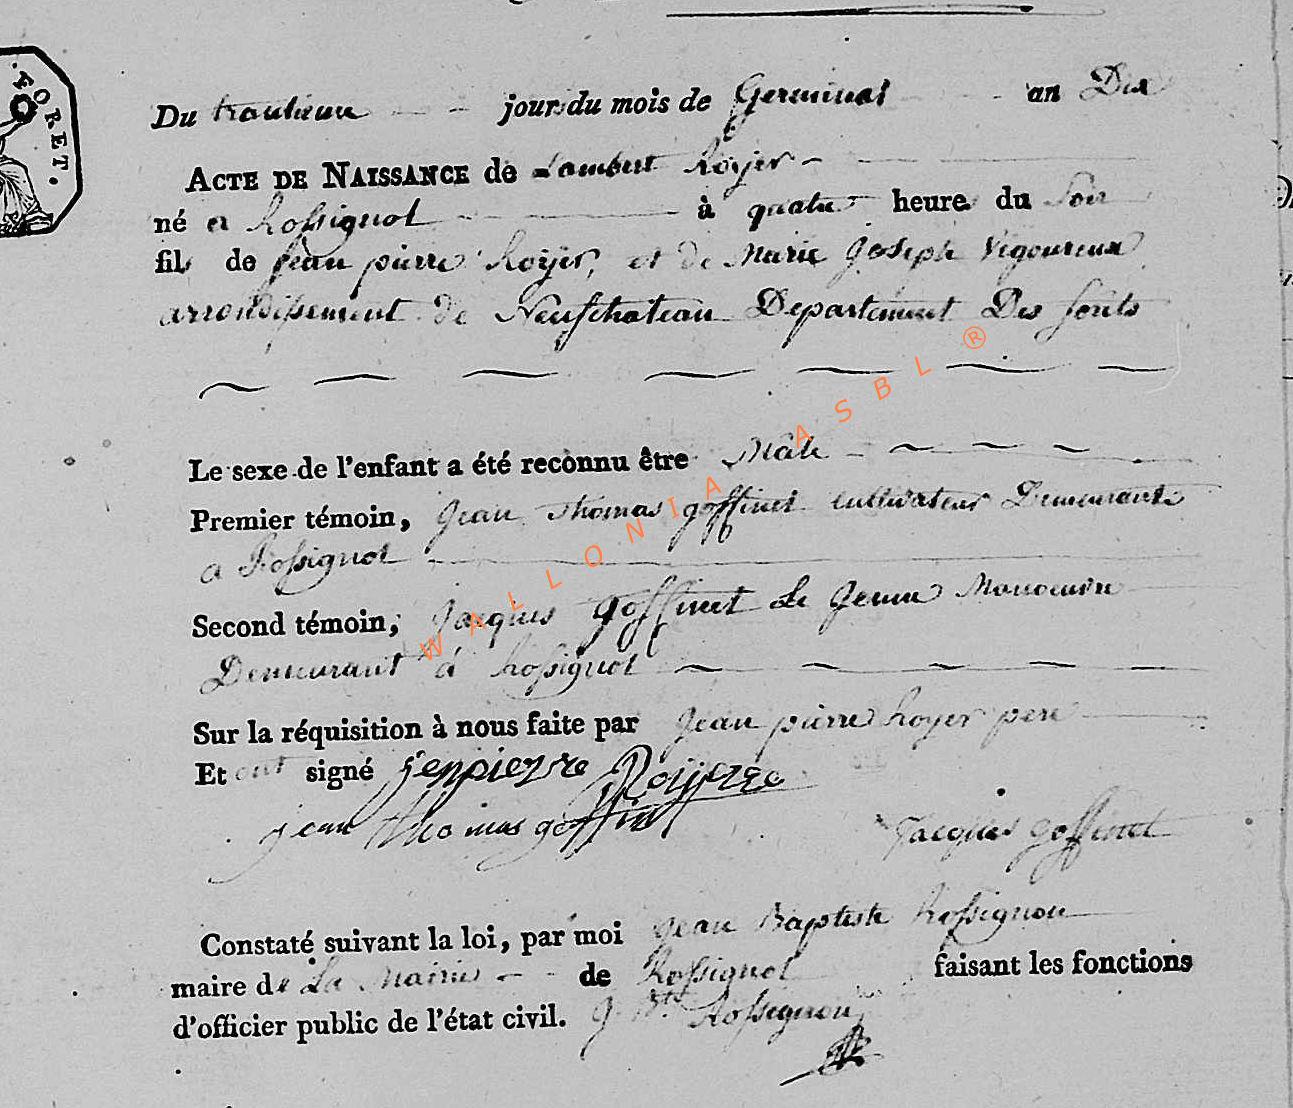 FORET.
Du trentieme jour du mois de Germinal an Dix
ACTE DE NAISSANCE de Lambert Royer
né a Rossignol à quatre heures du Soir
fils de Jean pierre Royer, et de Marie Joseph Vigoureux
arrondissement de Neufchateau Departement Des forets
Le sexe de l'enfant a été reconnu être Mâle
Premier témoin, Jean Thomas goffinet cultivateur Demeurant
a Rossignol
Second témoin, Jacques goffinet Le Jeune Manoeuvre
Demeurant á Rossignol
Sur la réquisition à nous faite par Jean pierre Royer pere
Et ont signé
jean thomas goffinet
Jacques goffinet
Constaté suivant la loi, par moi Jean Baptiste Rossignon
maire de La Mairie de Rossignol faisant les fonctions
d'officier public de l'état civil. J. Bte Rossignon
WALLONIA ASBL ®